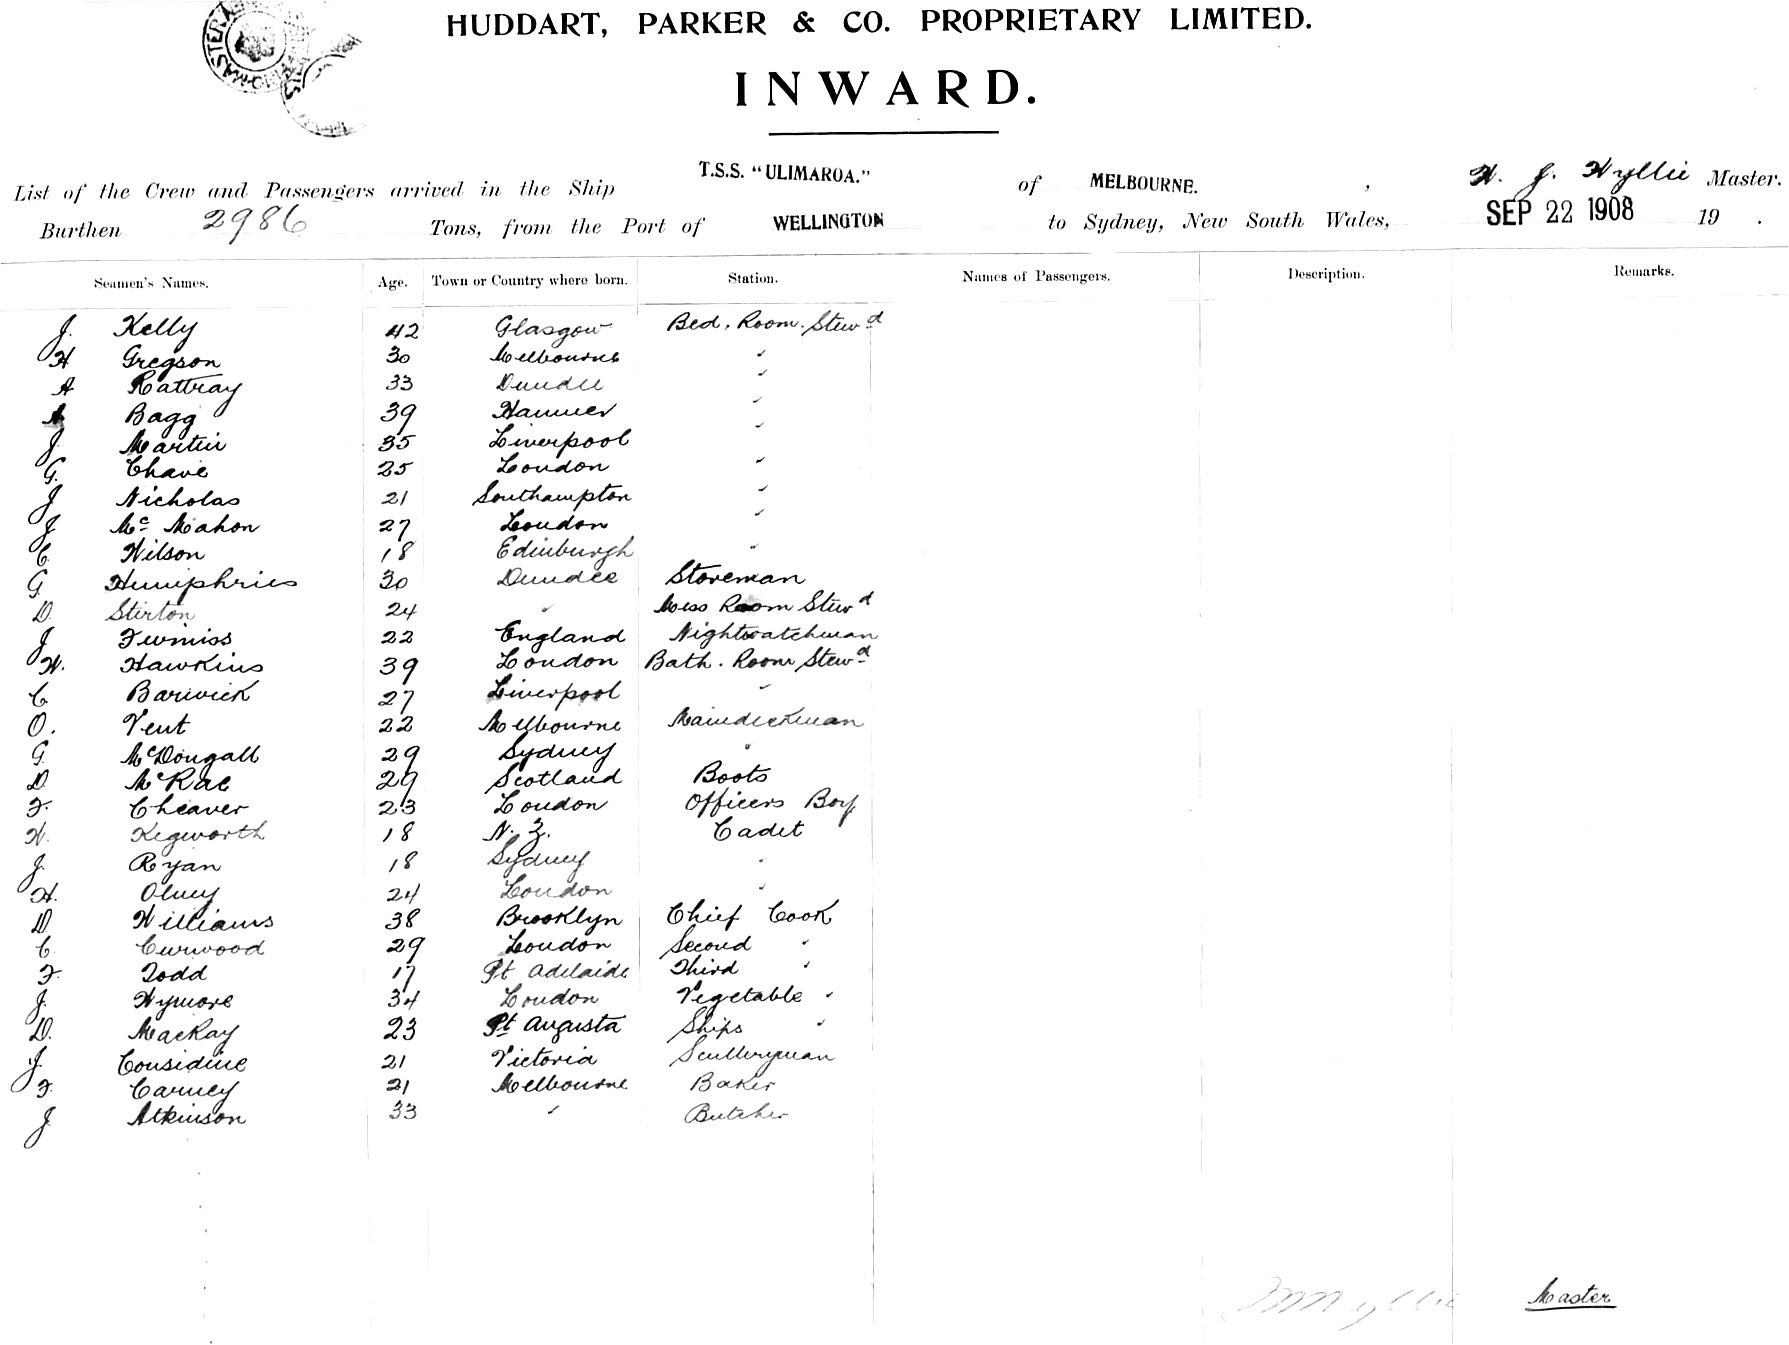 HUDDART, PARKER & CO. PROPRIETARY LIMITED.
INWARD.
List of the Crew and Passengers arrived in the Ship T.S.S. "ULIMAROA." of MELBOURNE. , W. J. Wyllie Master.
Burthen 2986 Tons, from the Port of WELLINGTON to Sydney, New South Wales, SEP 22 1908 19 .
Seamen's Names. Age. Town or Country where born. Station. Names of Passengers. Description. Remarks.
J. Kelly 42 Glasgow Bed. Room. Stewd
H Gregson 30 Melbourne "
A Rattray 33 Dundee "
Bagg 39 "
J. Martin 35 Liverpool "
G. Chave 25 London "
J Nicholas 21 Southampton "
J Mc Mahon 27 London "
C. Wilson 18 Edinburgh "
G Humphries 30 Dundee Storeman
D. Stirton 24 " Mess Room Stewd
J 22 England Nightwatchman
W. Hawkins 39 London Bath. Room Stewd
C Barwick 27 Liverpool "
O. Vent 22 Melbourne Maindeckman
G. McDougall 29 Sydney "
D. McRae 29 Scotland Boots
F. Cheaver 23 London Officers Boy
W. Kegworth 18 N. Z. Cadet
J. Ryan 18 Sydney "
H. Olney 24 London "
D. Williams 38 Brooklyn Chief Cook
C. Curwood 29 London Second "
F. Todd 17 Pt Adelaide Third "
J. Wymore 34 London Vegetable "
D. MacKay 23 Pt Augusta Ships "
J. Considine 21 Victoria Sculleryman
F. Carney 21 Melbourne Baker
J Atkinson 33 " Butcher
Master